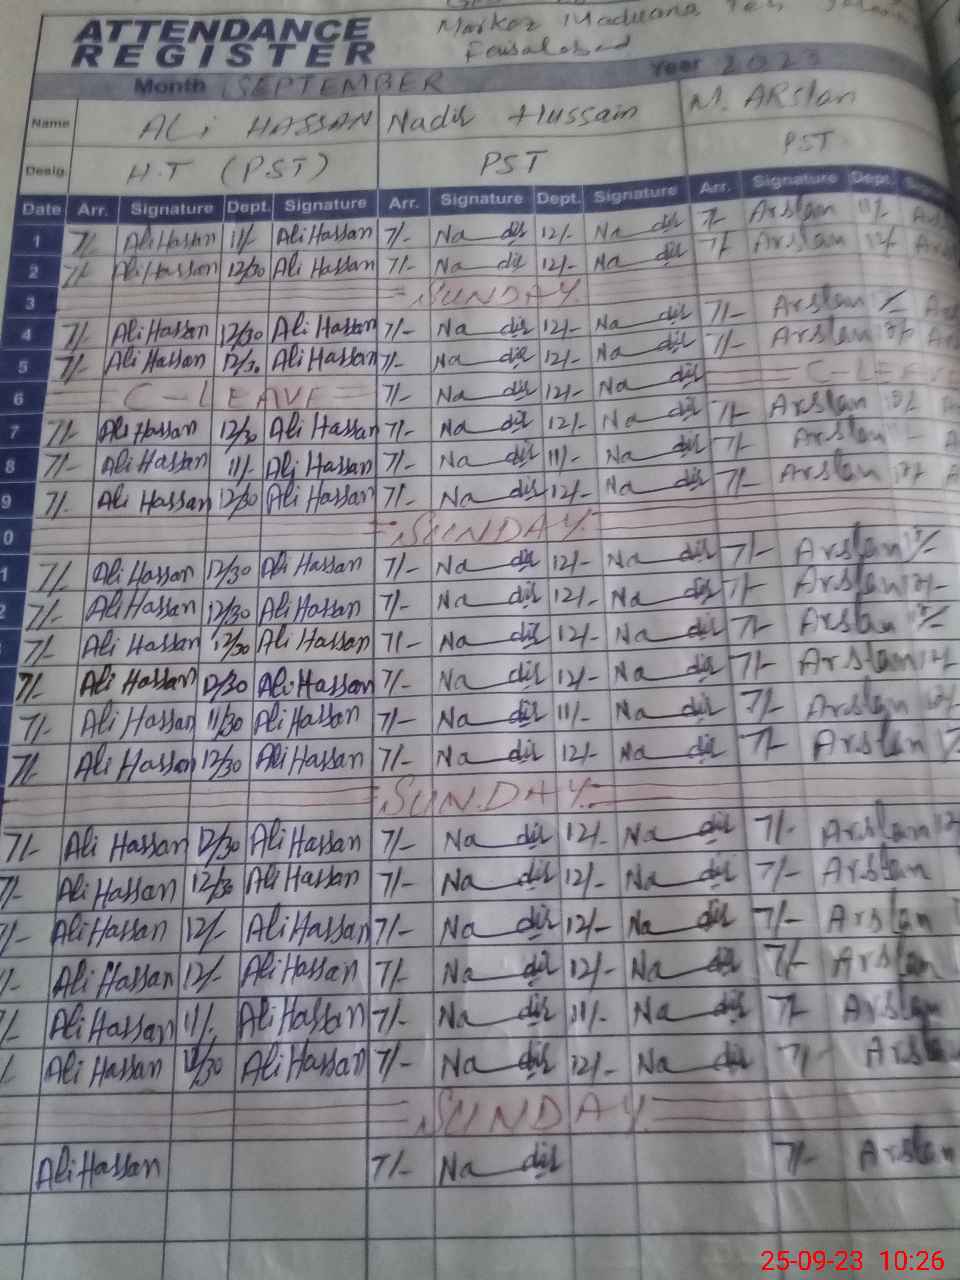 Markaz Maduana Teh.
ATTENDANCE
REGISTER
Faisalabad
Month SEPTEMBER Year 2023
Name ALi HASSAN Nadir Hussain M. ARslan
Desig. H.T (PST) PST PST
Date Arr. Signature Dept. Signature Arr. Signature Dept. Signature Arr. Signature Dept.
1 7/- Ali Hassan 11/- Ali Hassan 7/- Na dir 12/- Na dir 7/- Arslan 11/-
2 7/- Ali Hassan 12/30 Ali Hassan 7/- Na dir 12/- Na dir 7/- Arslan 12/
3 SUNDAY
4 7/- Ali Hassan 12/30 Ali Hassan 7/- Na dir 12/- Na dir 7/- Arslan
5 7/- Ali Hassan 12/30 Ali Hassan 7/- Na dir 12/- Na dir 7/- Arslan
6 C-LEAVE 7/- Na dir 12/- Na dir C-LEAVE
7 7/- Ali Hassan 12/30 Ali Hassan 7/- Na dir 12/- Na dir 7/- Arslan
8 7/- Ali Hassan 11/- Ali Hassan 7/- Na dir 11/- Na dir 7/- Arslan
9 7/- Ali Hassan 12/30 Ali Hassan 7/- Na dir 12/- Na dir 7/- Arslan
0 SUNDAY
1 7/- Ali Hassan 12/30 Ali Hassan 7/- Na dir 12/- Na dir 7/- Arslan
2 7/- Ali Hassan 12/30 Ali Hassan 7/- Na dir 12/- Na dir 7/- Arslan
7/- Ali Hassan 12/30 Ali Hassan 7/- Na dir 12/- Na dir 7/- Arslan
7/- Ali Hassan 12/30 Ali Hassan 7/- Na dir 12/- Na dir 7/- Arslan 12/-
7/- Ali Hassan 11/30 Ali Hassan 7/- Na dir 11/- Na dir 7/- Arslan
7/- Ali Hassan 12/30 Ali Hassan 7/- Na dir 12/- Na dir 7/- Arslan
SUNDAY
7/- Ali Hassan 12/30 Ali Hassan 7/- Na dir 12/- Na dir 7/- Arslan 12
7/- Ali Hassan 12/30 Ali Hassan 7/- Na dir 12/- Na dir 7/- Arslan
/- Ali Hassan 12/- Ali Hassan 7/- Na dir 12/- Na dir 7/- Arslan
/- Ali Hassan 12/- Ali Hassan 7/- Na dir 12/- Na dir 7/- Arslan
/- Ali Hassan 11/- Ali Hassan 7/- Na dir 11/- Na dir 7/- Arslan
/- Ali Hassan 12/30 Ali Hassan 7/- Na dir 12/- Na dir 7/- Arsla
SUNDAY
Ali Hassan 7/- Na dir 7/- Arslan
25-09-23 10:26